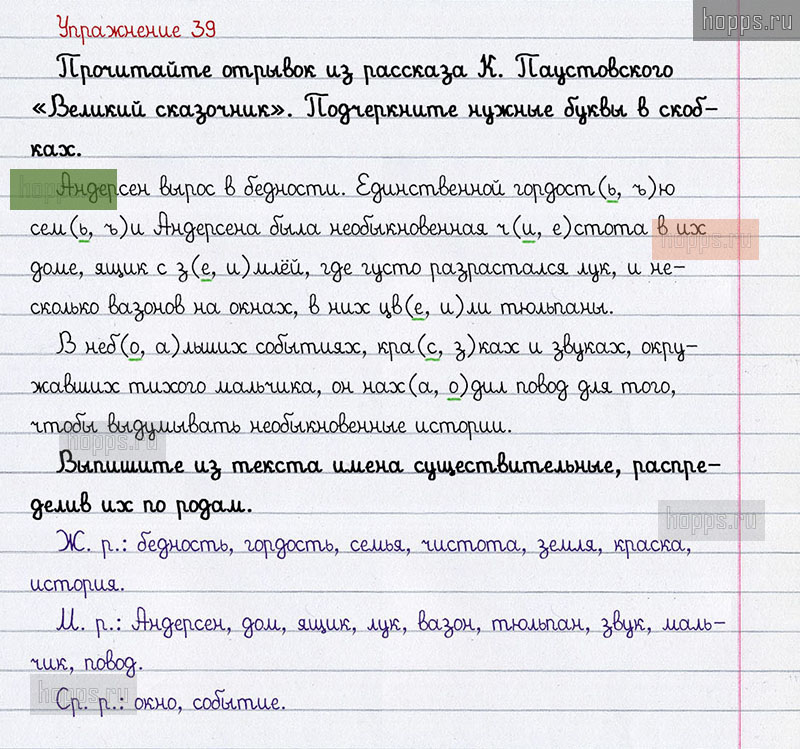 hopps.ru
Упражнение 39
Прочитайте отрывок из рассказа К. Паустовского
«Великий сказочник». Подчеркните нужные буквы в скоб-
ках.
Андерсен вырос в бедности. Единственной гордост(ь, ъ)ю
сем(ь, ъ)и Андерсена была необыкновенная ч(и, е)стота в их
доме, ящик с з(е, и)млёй, где густо разрастался лук, и не-
сколько вазонов на окнах, в них цв(е, и)ли тюльпаны.
В неб(о, а)льших событиях, кра(с, з)ках и звуках, окру-
жавших тихого мальчика, он нах(а, о)дил повод для того,
чтобы выдумывать необыкновенные истории.
hopps.ru
Выпишите из текста имена существительные, распре-
делив их по родам.
hopps.ru
Ж. р.: бедность, гордость, семья, чистота, земля, краска,
история.
М. р.: Андерсен, дом, ящик, лук, вазон, тюльпан, звук, маль-
чик, повод.
hopps.ru
Ср. р.: окно, событие.